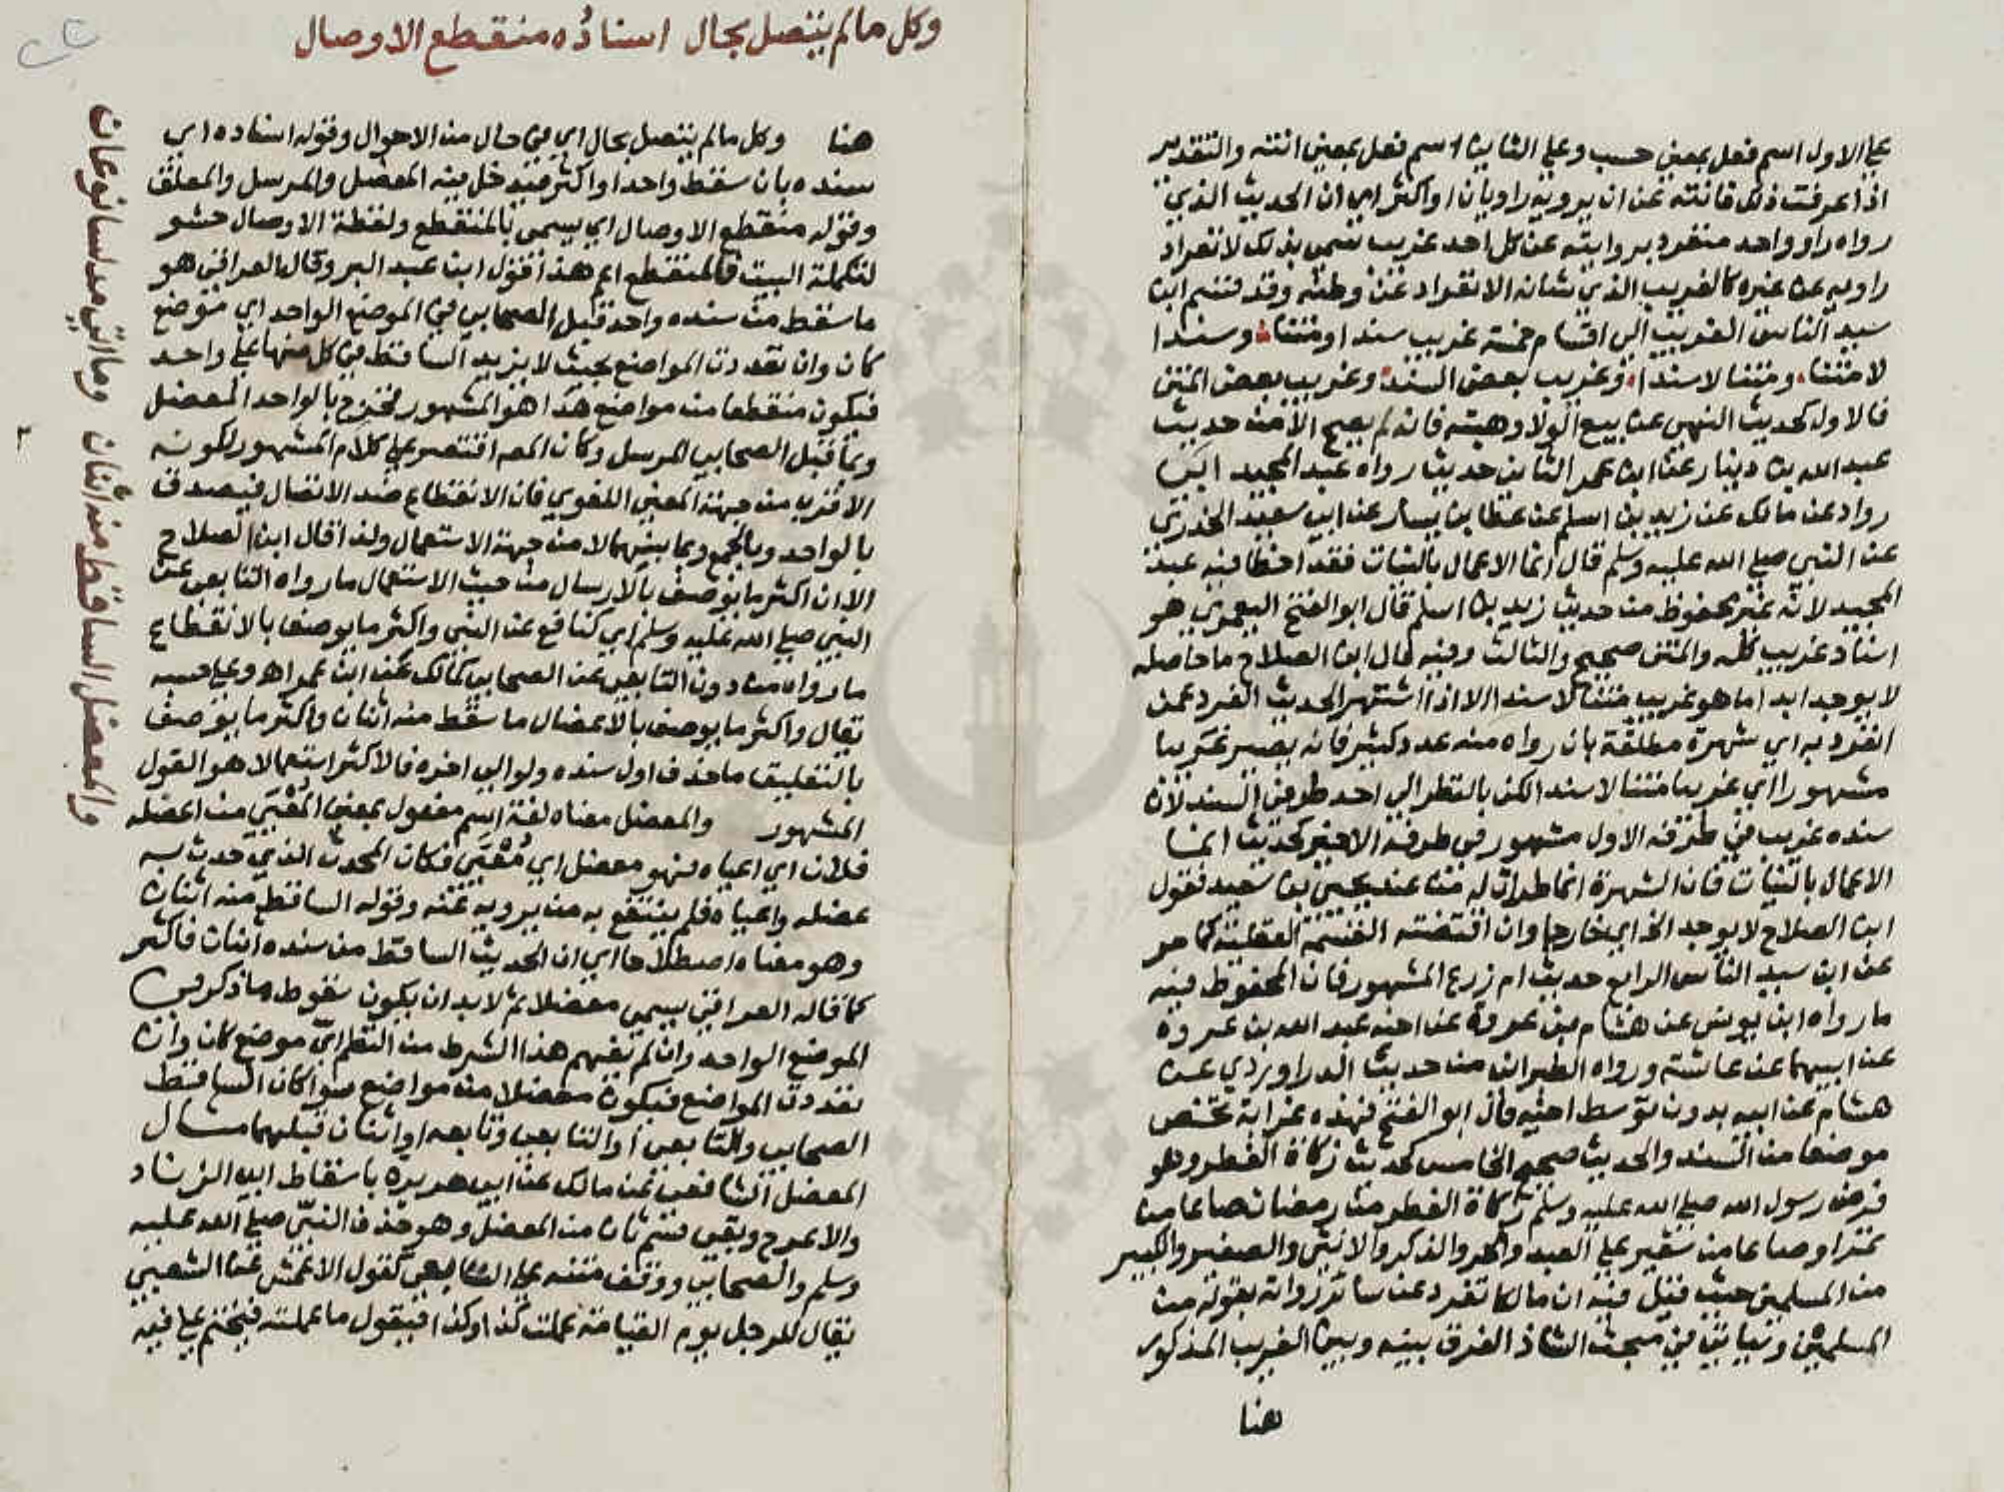 على الاول اسم فعل بمعنى حسب وعلى الثاني اسم فعل بمعنى انته والتقدير
اذا عرفت ذلك فانته عن ان يرويه راويان او اكثر اي ان الحديث الذي
رواه راو واحد منفرد بروايته عن كل احد غريب سمي بذلك لانفراد
راويه عن غيره كالغريب الذي شانه الانفراد عن وطنه وقد قسم ابن
سيد الناس الغريب الى اقسام خمسة غريب سندا ومتنا وسندا
لا متنا ومتنا لا سندا وغريب بعض السند وغريب بعض المتن
فالاول كحديث النهي عن بيع الولا وهبته فانه لم يصح الا من حديث
عبد الله بن دينار عن ابن عمر الثاني حديث رواه عبد المجيد ابن
رواد عن مالك عن زيد بن اسلم عن عطا بن يسار عن ابي سعيد الخدري
عن النبي صلى الله عليه وسلم قال انما الاعمال بالنيات فقد اخطا فيه عبد
المجيد لانه غير محفوظ من حديث زيد بن اسلم قال ابو الفتح اليعمري هو
اسناد غريب كله والمتن صحيح والثالث وفيه قال ابن الصلاح ما حاصله
لا يوجد ابدا ما هو غريب متنا لا سندا الا اذا اشتهر الحديث الفرد عمن
انفرد به اي شهرة مطلقة بان رواه منه عدد كثير فانه يصير غريبا
مشهورا اي غريبا متنا لا سندا لكن بالنظر الى احد طرفي السند لان
سنده غريب في طرفه الاول مشهور في طرفه الاخير كحديث انما
الاعمال بالنيات فان الشهرة انما طرات له من عند يحيى بن سعيد فقول
ابن الصلاح لا يوجد الخ اي خارجا وان اقتضته القسمة العقلية كما مر
عن ابن سيد الناس الرابع حديث ام زرع المشهور فان المحفوظ فيه
ما رواه ابن يونس عن هشام بن عروة عن اخيه عبد الله بن عروة
عن ابيهما عن عائشة ورواه الطبراني من حديث الدراوردي عن
هشام عن ابيه بدون توسط اخيه قال ابو الفتح فهذه غرابة تختص
موضعا من السند والحديث صحيح الخامس كحديث زكاة الفطر وهو
فرض رسول الله صلى الله عليه وسلم زكاة الفطر من رمضان صاعا من
تمر او صاعا من شعير على العبد والحر والذكر والانثى والصغير والكبير
من المسلمين حيث قيل فيه ان مالكا تفرد عن سائر رواته بقوله من
المسلمين وسياتي في مبحث الشاذ الفرق بينه وبين الغريب المذكور
هنا
وكل ما لم يتصل بحال اسناده منقطع الاوصال
هنا وكل ما لم يتصل بحال اي في حال من الاحوال وقوله اسناده اي
سنده بان سقط واحدا او اكثر فيدخل فيه المعضل والمرسل والمعلق
وقوله منقطع الاوصال اي يسمى بالمنقطع ولفظة الاوصال حشو
لتكملة البيت فالمنقطع اعم هذا قول ابن عبد البر وقال العراقي هو
ما سقط من سنده واحد قبل الصحابي في الموضع الواحد اي موضع
كان وان تعددت المواضع بحيث لا يزيد الساقط في كل منها على واحد
فيكون منقطعا من مواضع هذا هو المشهور فخرج بالواحد المعضل
وبما قبل الصحابي المرسل وكان المص اقتصر على كلام المشهور لكونه
الاقرب من جهة المعنى اللغوي فان الانقطاع ضد الاتصال فيصدق
بالواحد وبالجمع وبما بينهما لا من جهة الاستعمال ولذا قال ابن الصلاح
الا ان اكثر ما يوصف بالارسال من حيث الاستعمال ما رواه التابعي عن
النبي صلى الله عليه وسلم اي كنافع عن النبي واكثر ما يوصف بالانقطاع
ما رواه من دون التابعي عن الصحابي كمالك عن ابن عمر اهـ وعلى حسبه
يقال واكثر ما يوصف بالاعضال ما سقط منه اثنان واكثر ما يوصف
بالتعليق ما حذف اول سنده ولو الى اخره فالاكثر استعمالا هو القول
المشهور والمعضل معناه لغة اسم مفعول بمعنى المعيى من اعضله
فلان اي اعياه فهو معضل اي معيى فكان المحدث الذي حدث به
عضله واعياه فلم ينتفع به من يرويه عنه وقوله الساقط منه اثنان
وهو معناه اصطلاحا اي ان الحديث الساقط من سنده اثنان فاكثر
كما قاله العراقي يسمى معضلا ثم لا بد ان يكون سقوط ما ذكر في
الموضع الواحد وان لم يفهم هذا الشرط من النظم اي موضع كان وان
تعددت المواضع فيكون معضلا من مواضع سوا كان الساقط
الصحابي والتابعي او التابعي وتابعه او اثنان قبلهما مثال
المعضل الشافعي عن مالك عن ابي هريرة باسقاط ابي الزناد
والاعرج وبقي قسم ثان من المعضل وهو حذف النبي صلى الله عليه
وسلم والصحابي ووقف متنه على التابعي كقول الاعمش عن الشعبي
يقال للرجل يوم القيامة عملت كذا وكذا فيقول ما عملته فيختم على فيه
والمعضل الساقط منه اثنان وما اتى مدلسا نوعان